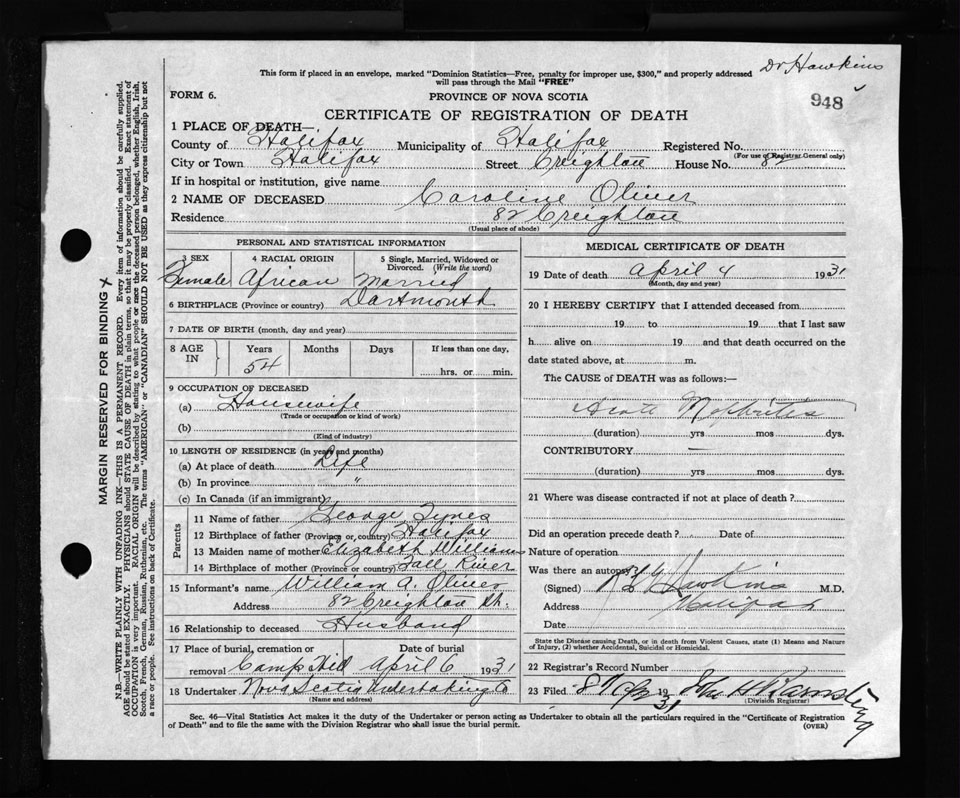 Dr Hawkins
This form if placed in an envelope, marked "Dominion Statistics—Free, penalty for improper use, $300," and properly addressed
will pass through the Mail "FREE"
948
FORM 6.
PROVINCE OF NOVA SCOTIA
CERTIFICATE OF REGISTRATION OF DEATH
1 PLACE OF DEATH—
County of Halifax Municipality of Halifax Registered No.
(For use of Registrar General only)
City or Town Halifax Street Creighton House No. 82
If in hospital or institution, give name
2 NAME OF DECEASED Caroline Oliver
Residence 82 Creighton
(Usual place of abode)
PERSONAL AND STATISTICAL INFORMATION
3 SEX 4 RACIAL ORIGIN 5 Single, Married, Widowed or Divorced. (Write the word)
Female African Married
6 BIRTHPLACE (Province or country) Dartmouth
7 DATE OF BIRTH (month, day and year)
8 AGE IN Years Months Days If less than one day,
54 hrs. or min.
9 OCCUPATION OF DECEASED
(a) Housewife
(Trade or occupation or kind of work)
(b)
(Kind of industry)
10 LENGTH OF RESIDENCE (in years and months)
(a) At place of death Life
(b) In province "
(c) In Canada (if an immigrant)
Parents
11 Name of father George Tynes
12 Birthplace of father (Province or country) Halifax
13 Maiden name of mother Elizabeth Williams
14 Birthplace of mother (Province or country) Fall River
15 Informant's name William A. Oliver
Address 82 Creighton St.
16 Relationship to deceased Husband
17 Place of burial, cremation or removal Date of burial
Camp Hill April 6 1931
18 Undertaker Nova Scotia Undertaking Co
(Name and address)
MEDICAL CERTIFICATE OF DEATH
19 Date of death April 4 1931
(Month, day and year)
20 I HEREBY CERTIFY that I attended deceased from
19 to 19 that I last saw
h alive on 19 and that death occurred on the
date stated above, at m.
The CAUSE of DEATH was as follows:—
Nephritis
(duration) yrs mos dys.
CONTRIBUTORY —
(duration) yrs mos dys.
21 Where was disease contracted if not at place of death?
Did an operation precede death? Date of
Nature of operation
Was there an autopsy?
(Signed) Hawkins M.D.
Address Halifax
Date
State the Disease causing Death, or in death from Violent Causes, state (1) Means and Nature
of Injury, (2) whether Accidental, Suicidal or Homicidal.
22 Registrar's Record Number
23 Filed 8 1931 John H Barnstead
(Division Registrar)
Sec. 46—Vital Statistics Act makes it the duty of the Undertaker or person acting as Undertaker to obtain all the particulars required in the "Certificate of Registration
of Death" and to file the same with the Division Registrar who shall issue the burial permit.
(OVER)
MARGIN RESERVED FOR BINDING
N.B.—WRITE PLAINLY WITH UNFADING INK—THIS IS A PERMANENT RECORD. Every item of information should be carefully supplied.
AGE should be stated EXACTLY. PHYSICIANS should STATE CAUSE OF DEATH in plain terms, so that it may be properly classified. Exact statement of
OCCUPATION is very important. RACIAL ORIGIN will be described by stating to what people or race the deceased person belonged, whether English, Irish,
Scotch, French, German, Russian, Ruthenian, etc. The terms "AMERICAN" or "CANADIAN" SHOULD NOT BE USED as they express citizenship but not
a race or people. See instructions on back of Certificate.